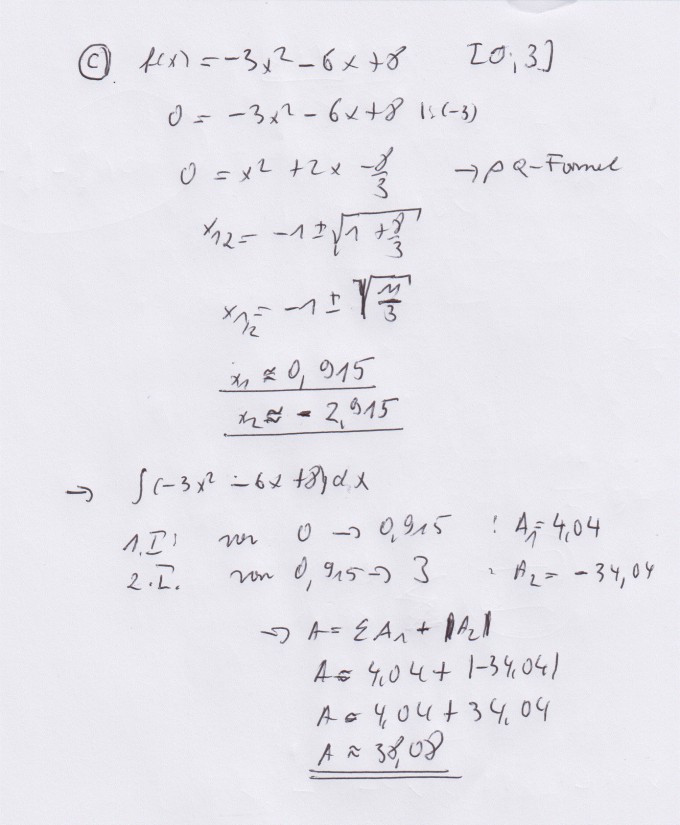 c) f(x) = -3x² - 6x + 8 [0; 3]
0 = -3x² - 6x + 8 |:(-3)
0 = x² + 2x - 8/3 → pQ-Formel
x₁₂ = -1 ± √(1 + 8/3)
x₁/₂ = -1 ± √(11/3)
x₁ ≈ 0,915
x₂ ≈ -2,915
→ ∫(-3x² - 6x + 8) dx
1. I: von 0 → 0,915 : A₁ = 4,04
2. I. von 0,915 → 3 : A₂ = -34,04
→ A = ΣA₁ + |A₂|
A = 4,04 + |-34,04|
A = 4,04 + 34,04
A ≈ 38,08